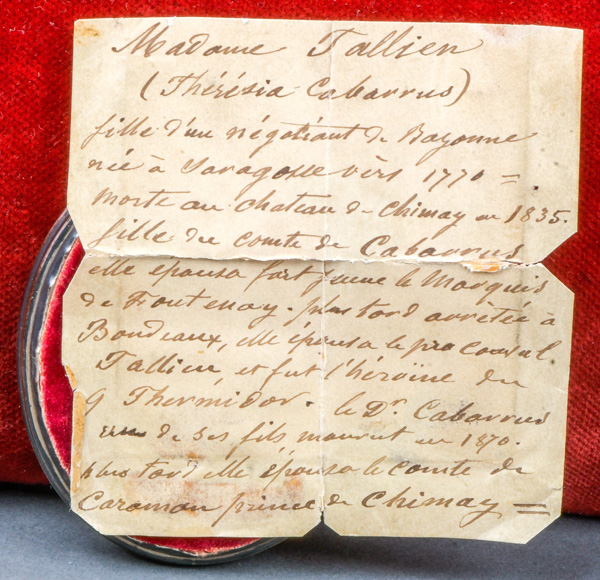 Madame Tallien
(Thérésia Cabarrus)
fille d'un négotiant de Bayonne
née à Saragosse vèrs 1770 =
morte au chateau de Chimay en 1835.
fille du comte de Cabarrus
elle épousa fort jeune le Marquis
de Fontenay. plus tard arrêtée à
Bordeaux, elle épousa le proconsul
Tallien et fut l'héroïne du
9 Thermidor. le Dr. Cabarrus
un de ses fils mourut en 1870.
plus tard elle épousa le comte de
Caraman prince de Chimay =